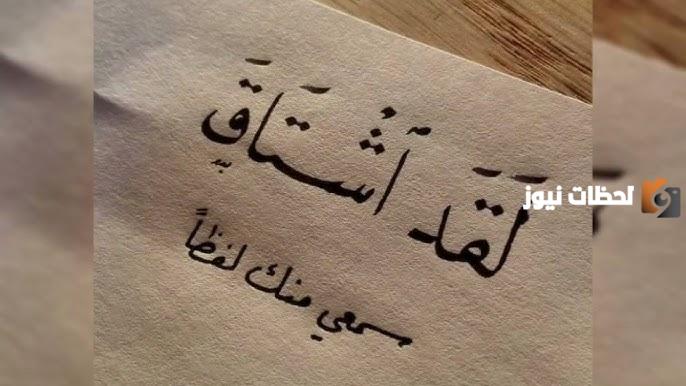 لَقَد أَشْتَاقَ
سمعي منك لفظاً
لحظات نيوز